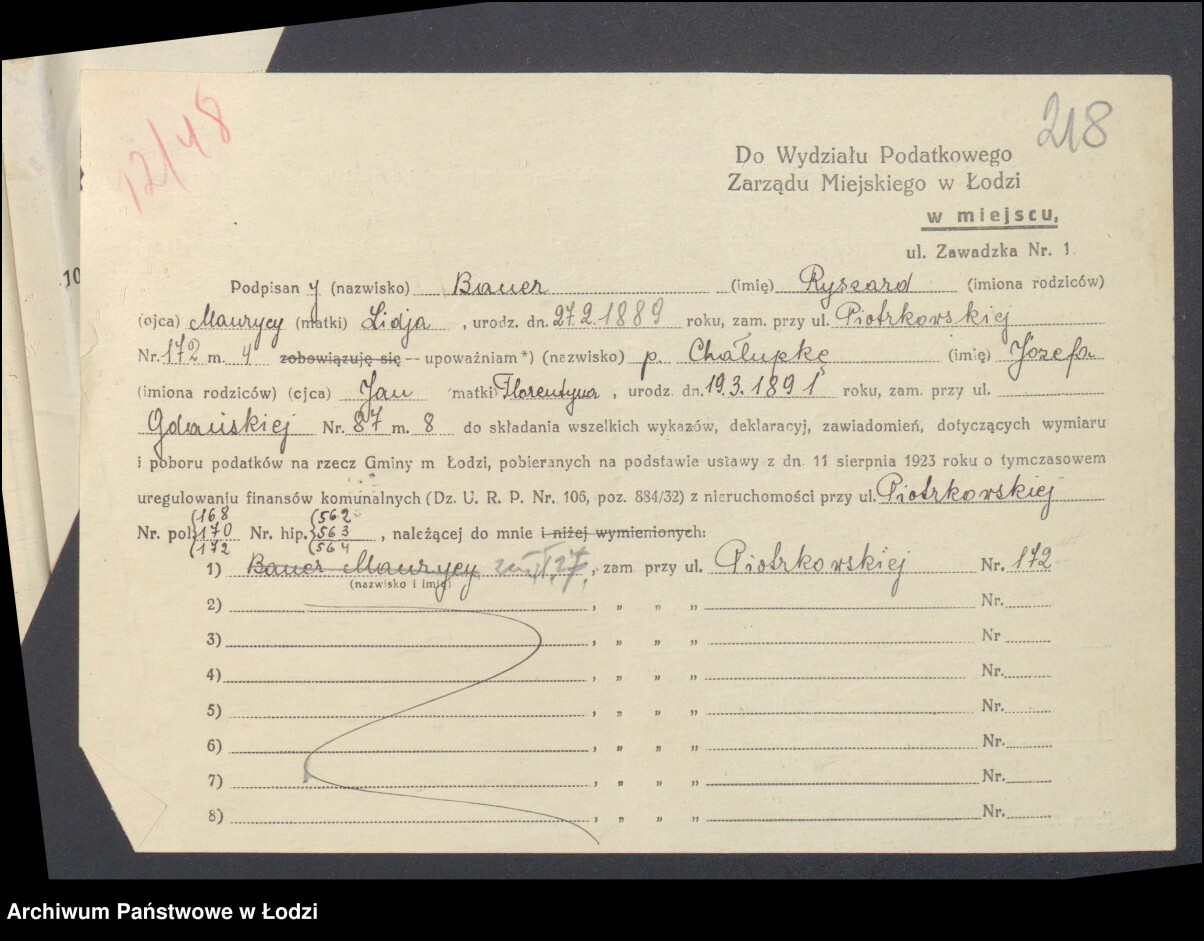 12/48
218
Do Wydziału Podatkowego
Zarządu Miejskiego w Łodzi
w miejscu,
ul. Zawadzka Nr. 1.
10
Podpisany (nazwisko) Bauer (imię) Ryszard (imiona rodziców)
(ojca) Maurycy (matki) Lidja, urodz. dn. 27.2.1889 roku, zam. przy ul. Piotrkowskiej
Nr. 172 m. 4 zobowiązuję się — upoważniam*) (nazwisko) p. Chałupkę (imię) Józefa
(imiona rodziców) (ojca) Jan matki Florentyna, urodz. dn. 19.3.1891 roku, zam. przy ul.
Gdańskiej Nr. 87 m. 8 do składania wszelkich wykazów, deklaracyj, zawiadomień, dotyczących wymiaru
i poboru podatków na rzecz Gminy m Łodzi, pobieranych na podstawie ustawy z dn. 11 sierpnia 1923 roku o tymczasowem
uregulowaniu finansów komunalnych (Dz. U. R. P. Nr. 106, poz. 884/32) z nieruchomości przy ul. Piotrkowskiej
Nr. pol. 168 170 172 Nr. hip. 562 563 564, należącej do mnie i niżej wymienionych:
1) Bauer Maurycy 27, zam. przy ul. Piotrkowskiej Nr. 172
(nazwisko i imię)
2) , „ „ „ Nr.
3) , „ „ „ Nr
4) , „ „ „ Nr.
5) , „ „ „ Nr.
6) , „ „ „ Nr.
7) , „ „ „ Nr.
8) , „ „ „ Nr.
Archiwum Państwowe w Łodzi